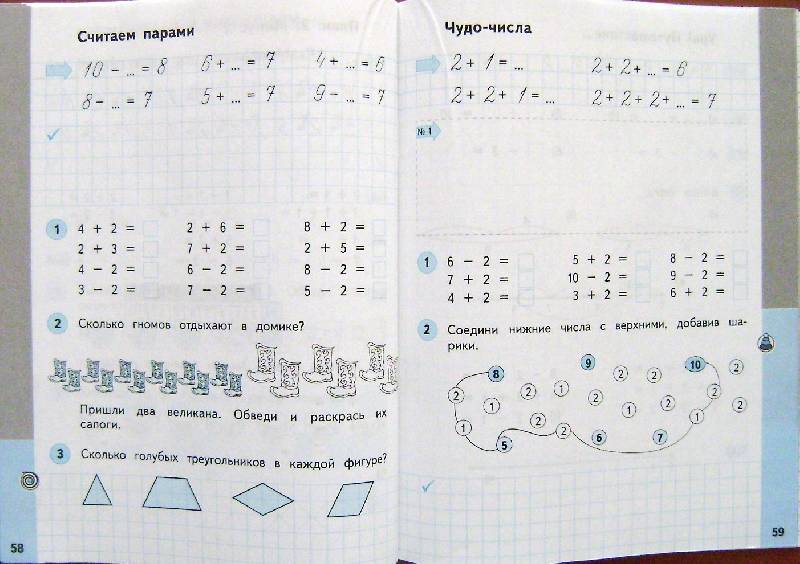 Считаем парами
10 – ... = 8 6 + ... = 7 4 + ... = 6
8 – ... = 7 5 + ... = 7 9 – ... = 7
1 4 + 2 = 2 + 6 = 8 + 2 =
2 + 3 = 7 + 2 = 2 + 5 =
4 – 2 = 6 – 2 = 8 – 2 =
3 – 2 = 7 – 2 = 5 – 2 =
2 Сколько гномов отдыхают в домике?
Пришли два великана. Обведи и раскрась их
сапоги.
3 Сколько голубых треугольников в каждой фигуре?
58
Чудо-числа
2 + 1 = ... 2 + 2 + ... = 6
2 + 2 + 1 = ... 2 + 2 + 2 + ... = 7
№ 1
1 6 – 2 = 5 + 2 = 8 – 2 =
7 + 2 = 10 – 2 = 9 – 2 =
4 + 2 = 3 + 2 = 6 + 2 =
2 Соедини нижние числа с верхними, добавив ша-
рики.
8 9 10
2 2 2
2 2 1 2 2
1 2 1 2 2
1 2 2
5 6 7
59